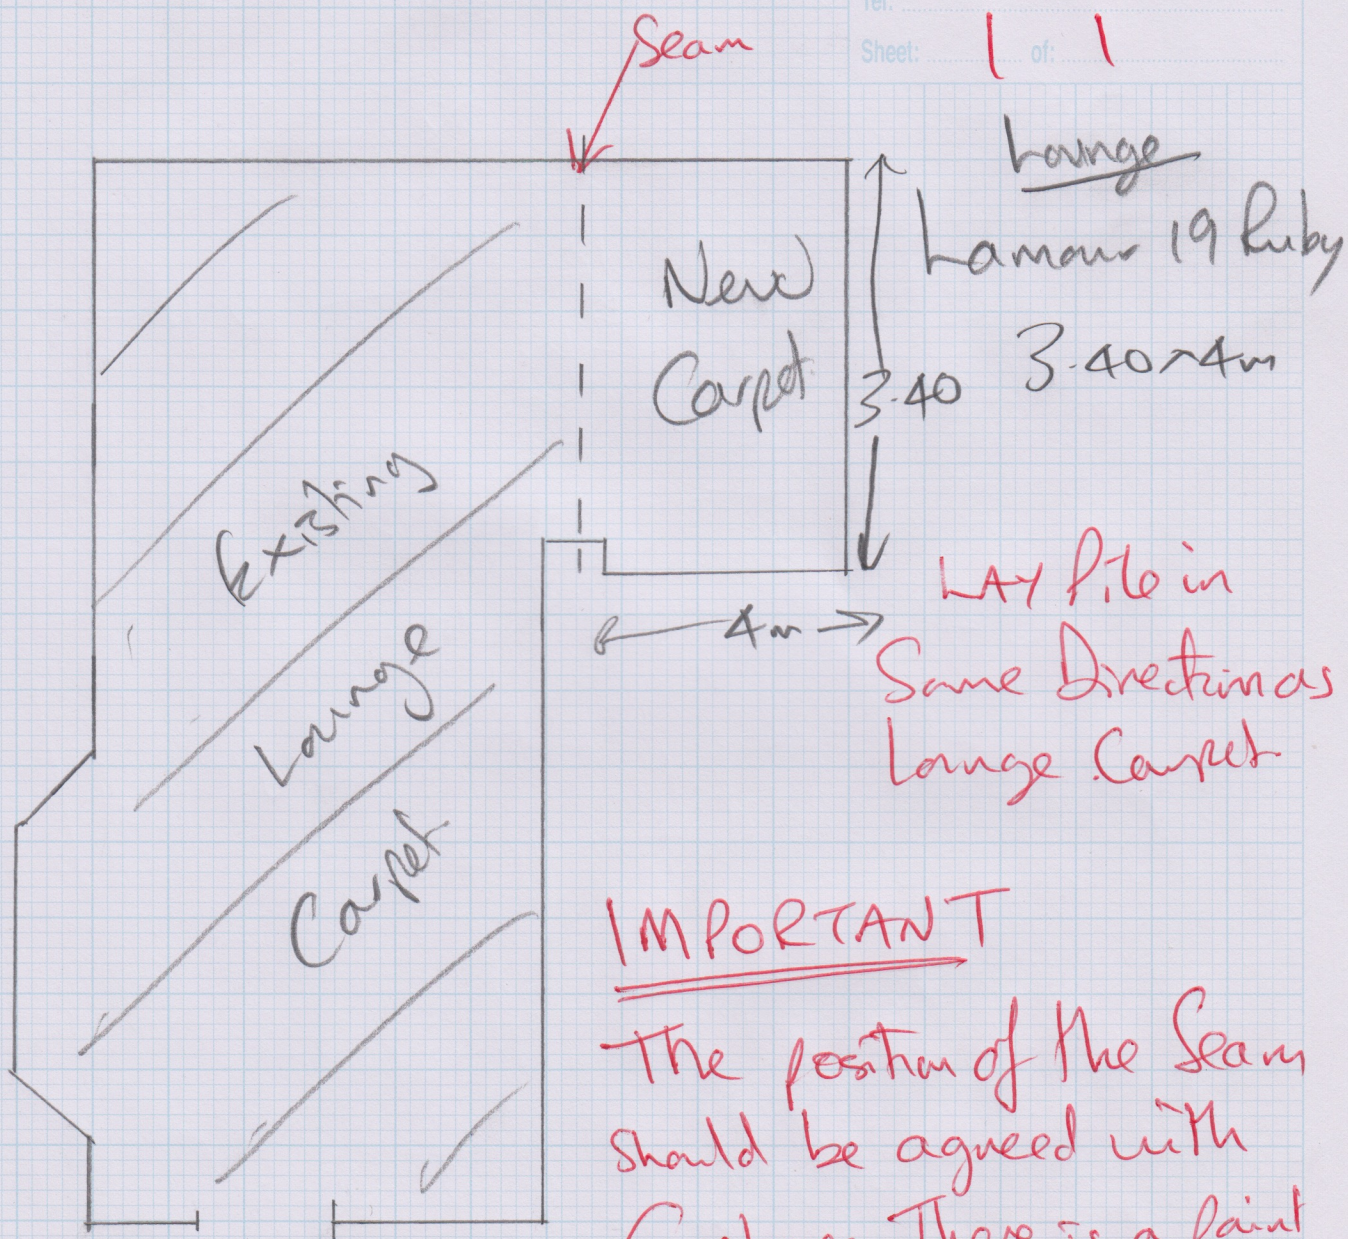 Tel:
Sheet: 1 of: 1
Seam
Lounge
Lamour 19 Ruby
3.40 x 4m
New
Carpet
3.40
4m
Existing
Lounge
Carpet
LAY Pile in
Same Direction as
Lounge Carpet
IMPORTANT
The position of the Seam
should be agreed with
There is a